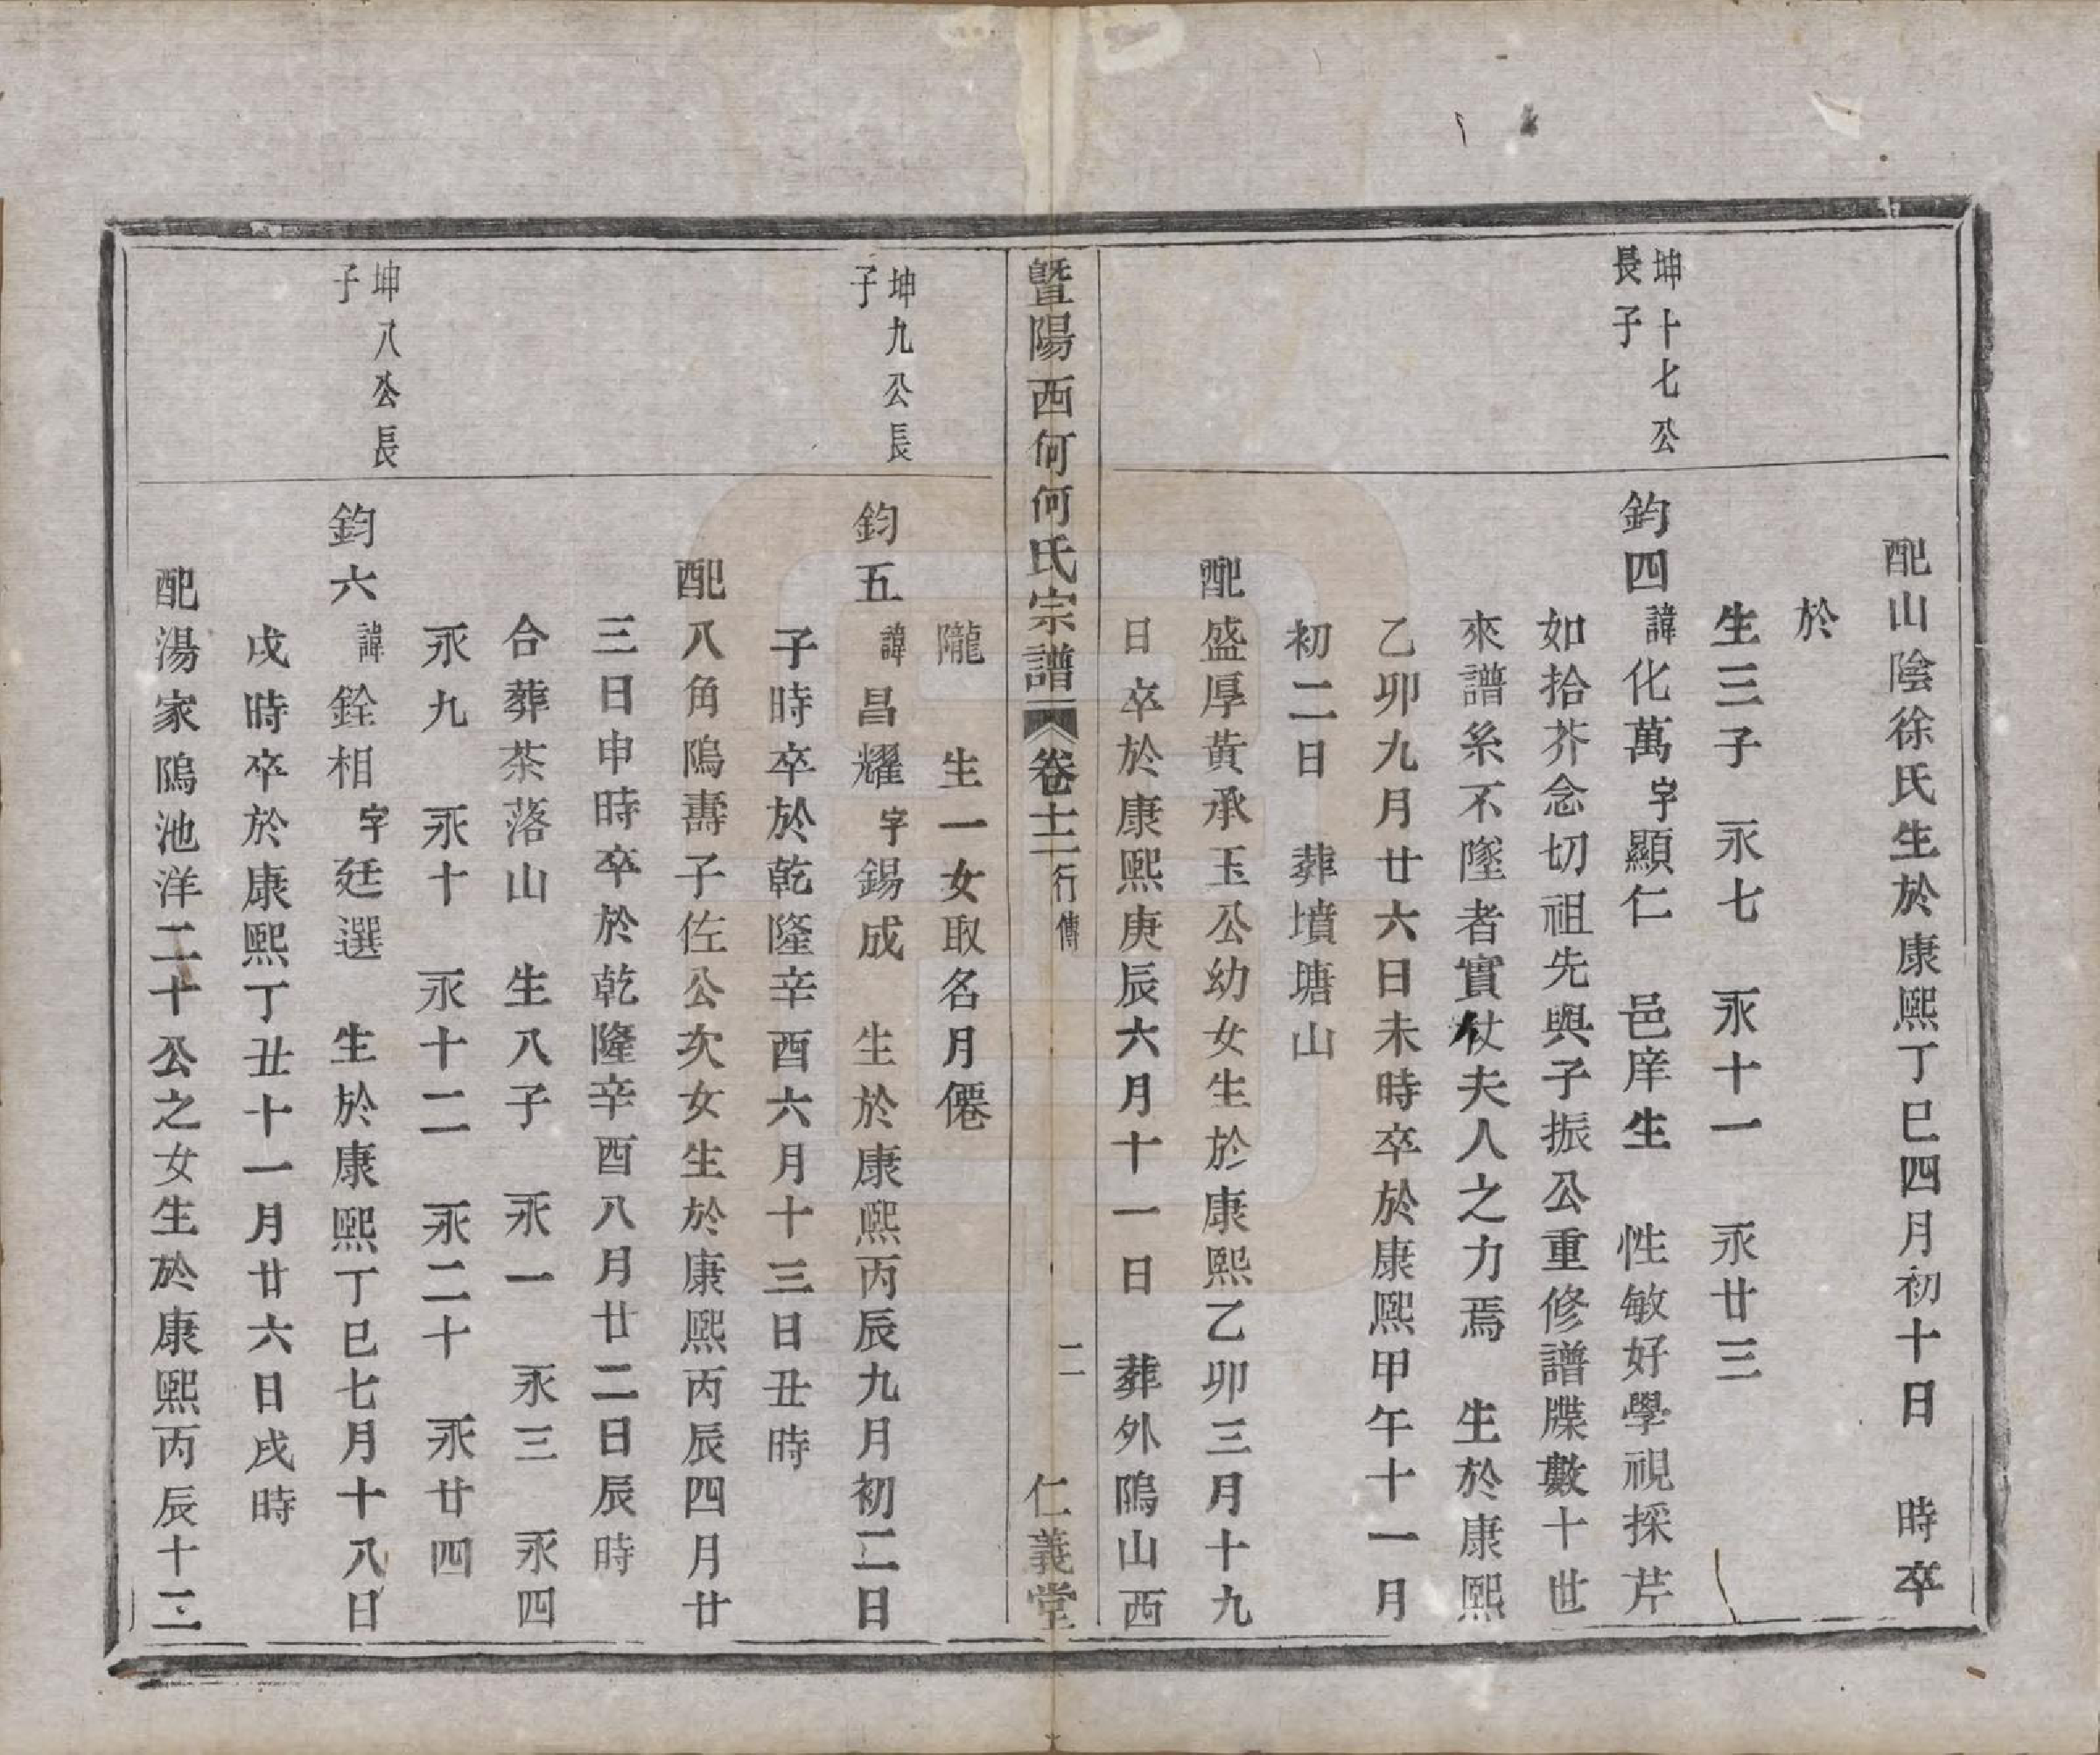 配山陰徐氏生於康熙丁巳四月初十日　時卒
於
生三子　永七　永十一　永廿三
坤十七公
長子
鈞四諱化萬字顯仁　邑庠生　性敏好學視採芹
如拾芥念切祖先與子振公重修譜牒數十世
來譜系不墜者實仗夫人之力焉　生於康熙
乙卯九月廿六日未時卒於康熙甲午十一月
初二日　葬墳塘山
配盛厚黃承玉公幼女生於康熙乙卯三月十九
日卒於康熙庚辰六月十一日　葬外隖山西
暨陽西何何氏宗譜　卷十二　行傳　二　仁義堂
隴　生一女取名月僊
坤九公長
子
鈞五諱昌耀字錫成　生於康熙丙辰九月初二日
子時卒於乾隆辛酉六月十三日丑時
配八角隖壽子佐公次女生於康熙丙辰四月廿
三日申時卒於乾隆辛酉八月廿二日辰時
合葬茶落山　生八子　永一　永三　永四
永九　永十　永十二　永二十　永廿四
坤八公長
子
鈞六諱銓相字廷選　生於康熙丁巳七月十八日
戌時卒於康熙丁丑十一月廿六日戌時
配湯家隖池洋二十公之女生於康熙丙辰十二